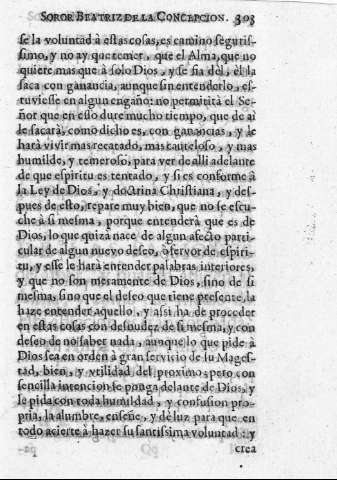 SOROR BEATRIZ DE LA CONCEPCION. 303
se la voluntad à estas cosas, es camino seguris-
simo, y no ay que temer, que el Alma, que no
quiere mas que à solo Dios, y se fia dèl, èl la
saca con ganancia, aunque sin entenderlo, es-
tuviesse en algun engaño: no permitirà el Se-
ñor que en esso dure mucho tiempo, que de ai
le sacarà, como dicho es, con ganancias, y le
harà vivir mas recatado, mas cauteloso, y mas
humilde, y temeroso, para ver de alli adelante
de que espiritu es tentado, y si es conforme à
la Ley de Dios, y doctrina Christiana, y des-
pues de esto, repare muy bien, que no se escu-
che à si mesma, porque entenderà que es de
Dios, lo que quizà nace de algun afecto parti-
cular de algun nuevo deseo, ò fervor de espiri-
tu, y esse le harà entender palabras interiores,
y que no son meramente de Dios, sino de si
mesma, sino que el deseo que tiene presente, la
haze entender aquello, y assi ha de proceder
en estas cosas con desnudez de si mesma, y con
deseo de no saber nada, aunque lo que pide à
Dios sea en orden à gran servicio de su Mages-
tad, bien, y vtilidad del proximo; pero con
sencilla intencion se ponga delante de Dios, y
le pida con toda humildad, y confusion pro-
pria, la alumbre, enseñe, y dè luz para que en
todo acierte à hazer su santissima voluntad: y
crea